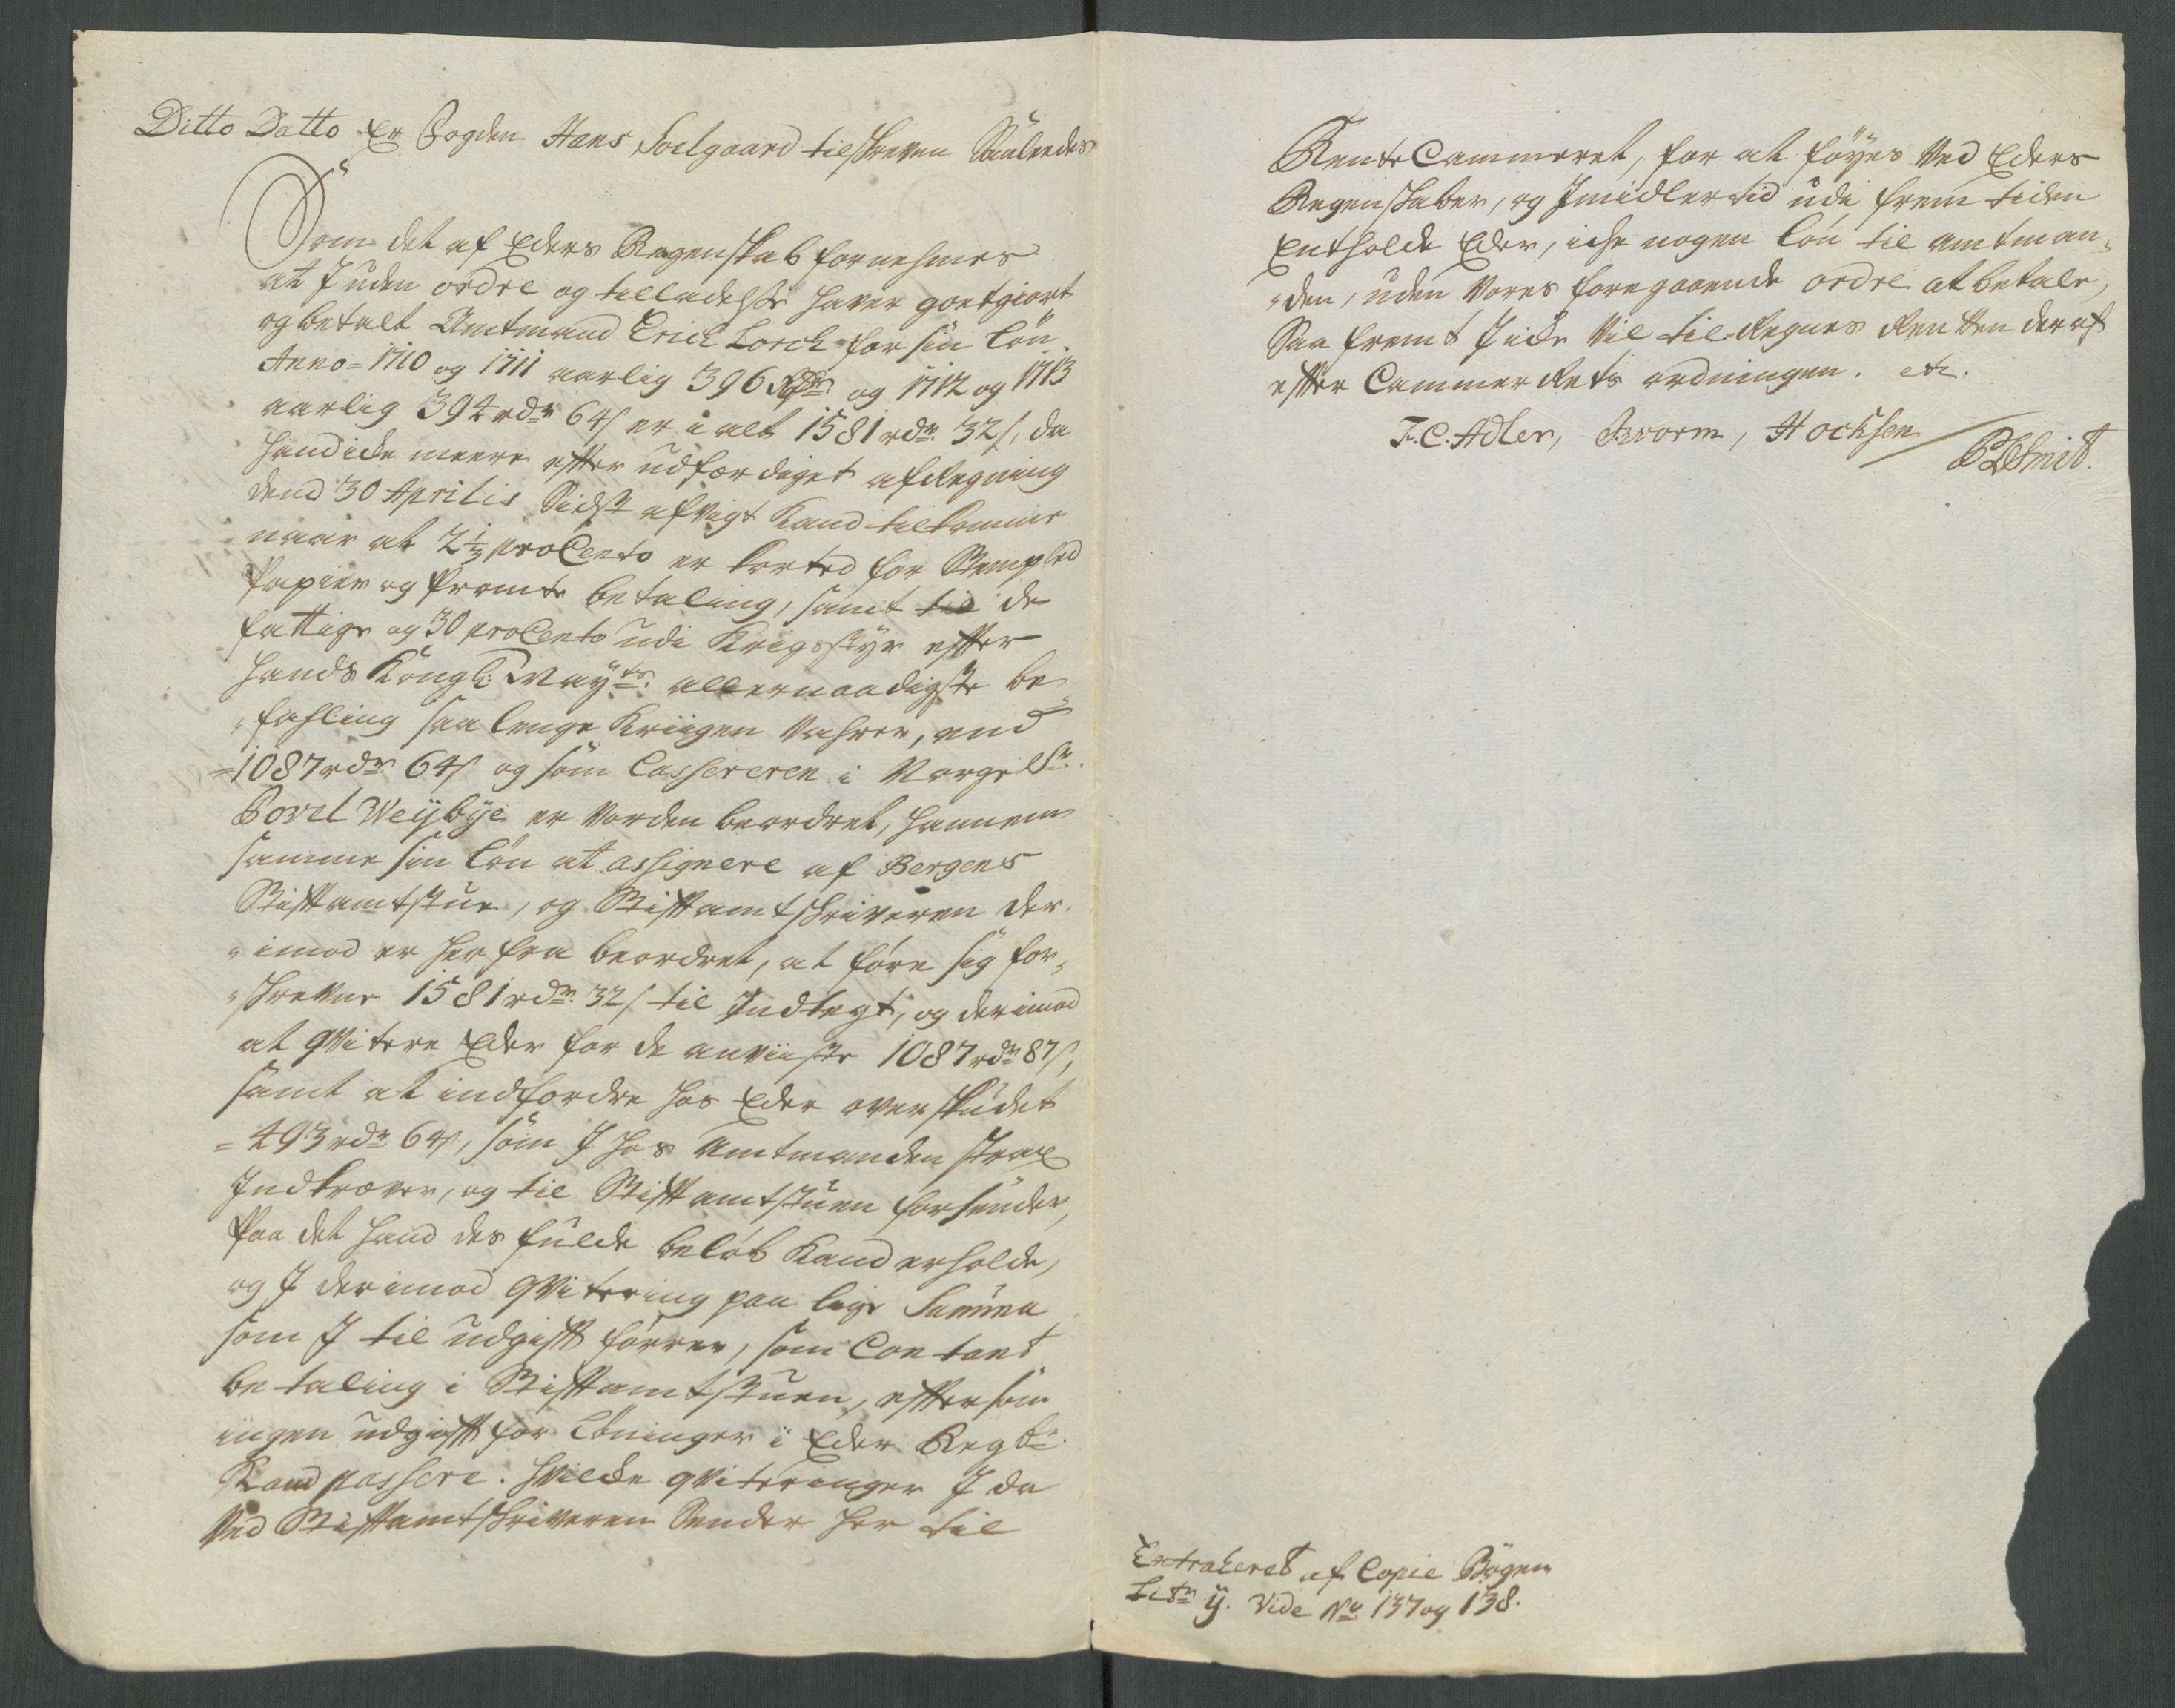 Ditto Datto Er Fogden Hans Soelgaard tilskreven Saaledes
Som det af Eders Regenskab fornehmes
at I uden ordre og tilladelse haver goetgiort
og betalt Amtmand Erich Lorch for sin løn
Anno = 1710 og 1711 aarlig 396 Rdr og 1712 og 1713
aarlig 394 rdr 64 s er i alt 1581 rdr 32 s, da
hand icke meere efter udfærdiget afregning
dend 30 Aprilis Sidst afvigt kand tilkomme
naar at 2½ proCento er korted for Stempled
Papier og Promte betaling, samt til de
fattige og 30 proCento udi Krigsstyr efter
hands Kongl: Mayts: allernaadigste be-
"fahling saa lenge Kriigen vahrer, end
=1087 rdr 64 s og som Cassereren i Norge Sr.
Povel Weybye er vorden beordret, hannem
samme sin løn at assignere af Bergens
Stiftamtstue, og Stiftamtskriveren der
"imod er her fra beordret, at føre sig for-
"skrevne 1581 rdr 32 s til Indtegt, og derimod
at qvitere Eder for de anviiste 1087 rdr 87 s,
samt at indfordre hos Eder overskudet
= 493 rdr 64 s, som I hos Amtmanden strax
Indkræver, og til Stiftamtstuen forsender,
paa det hand des fulde beløb kand erholde,
og I derimod qvitering paa lige Summa
som I til udgift fører, som Contant
betaling i Stiftamtstuen, eftersom
ingen udgift for Lønninger i Eder Regsk:
Kand passere. Hvilke qviteringer I da
ved Stiftamtskriveren Sender her til
RenteCammeret, for at føyes ved Eders
Regenskaber, og Imidlertid udi frem tiden
Entholde Eder, iche nogen løn til amtman-
"den, uden vores foregaaende ordre at betale,
Saa fremt I icke vil tilregnes Renten deraf
efter Cammer Rets ordningen. etc.
F. C. Adler, Bworm, Hocksen / PLSmit.
Extraheret af Copie Bogen
Litr y. Vide No 137 og 138.